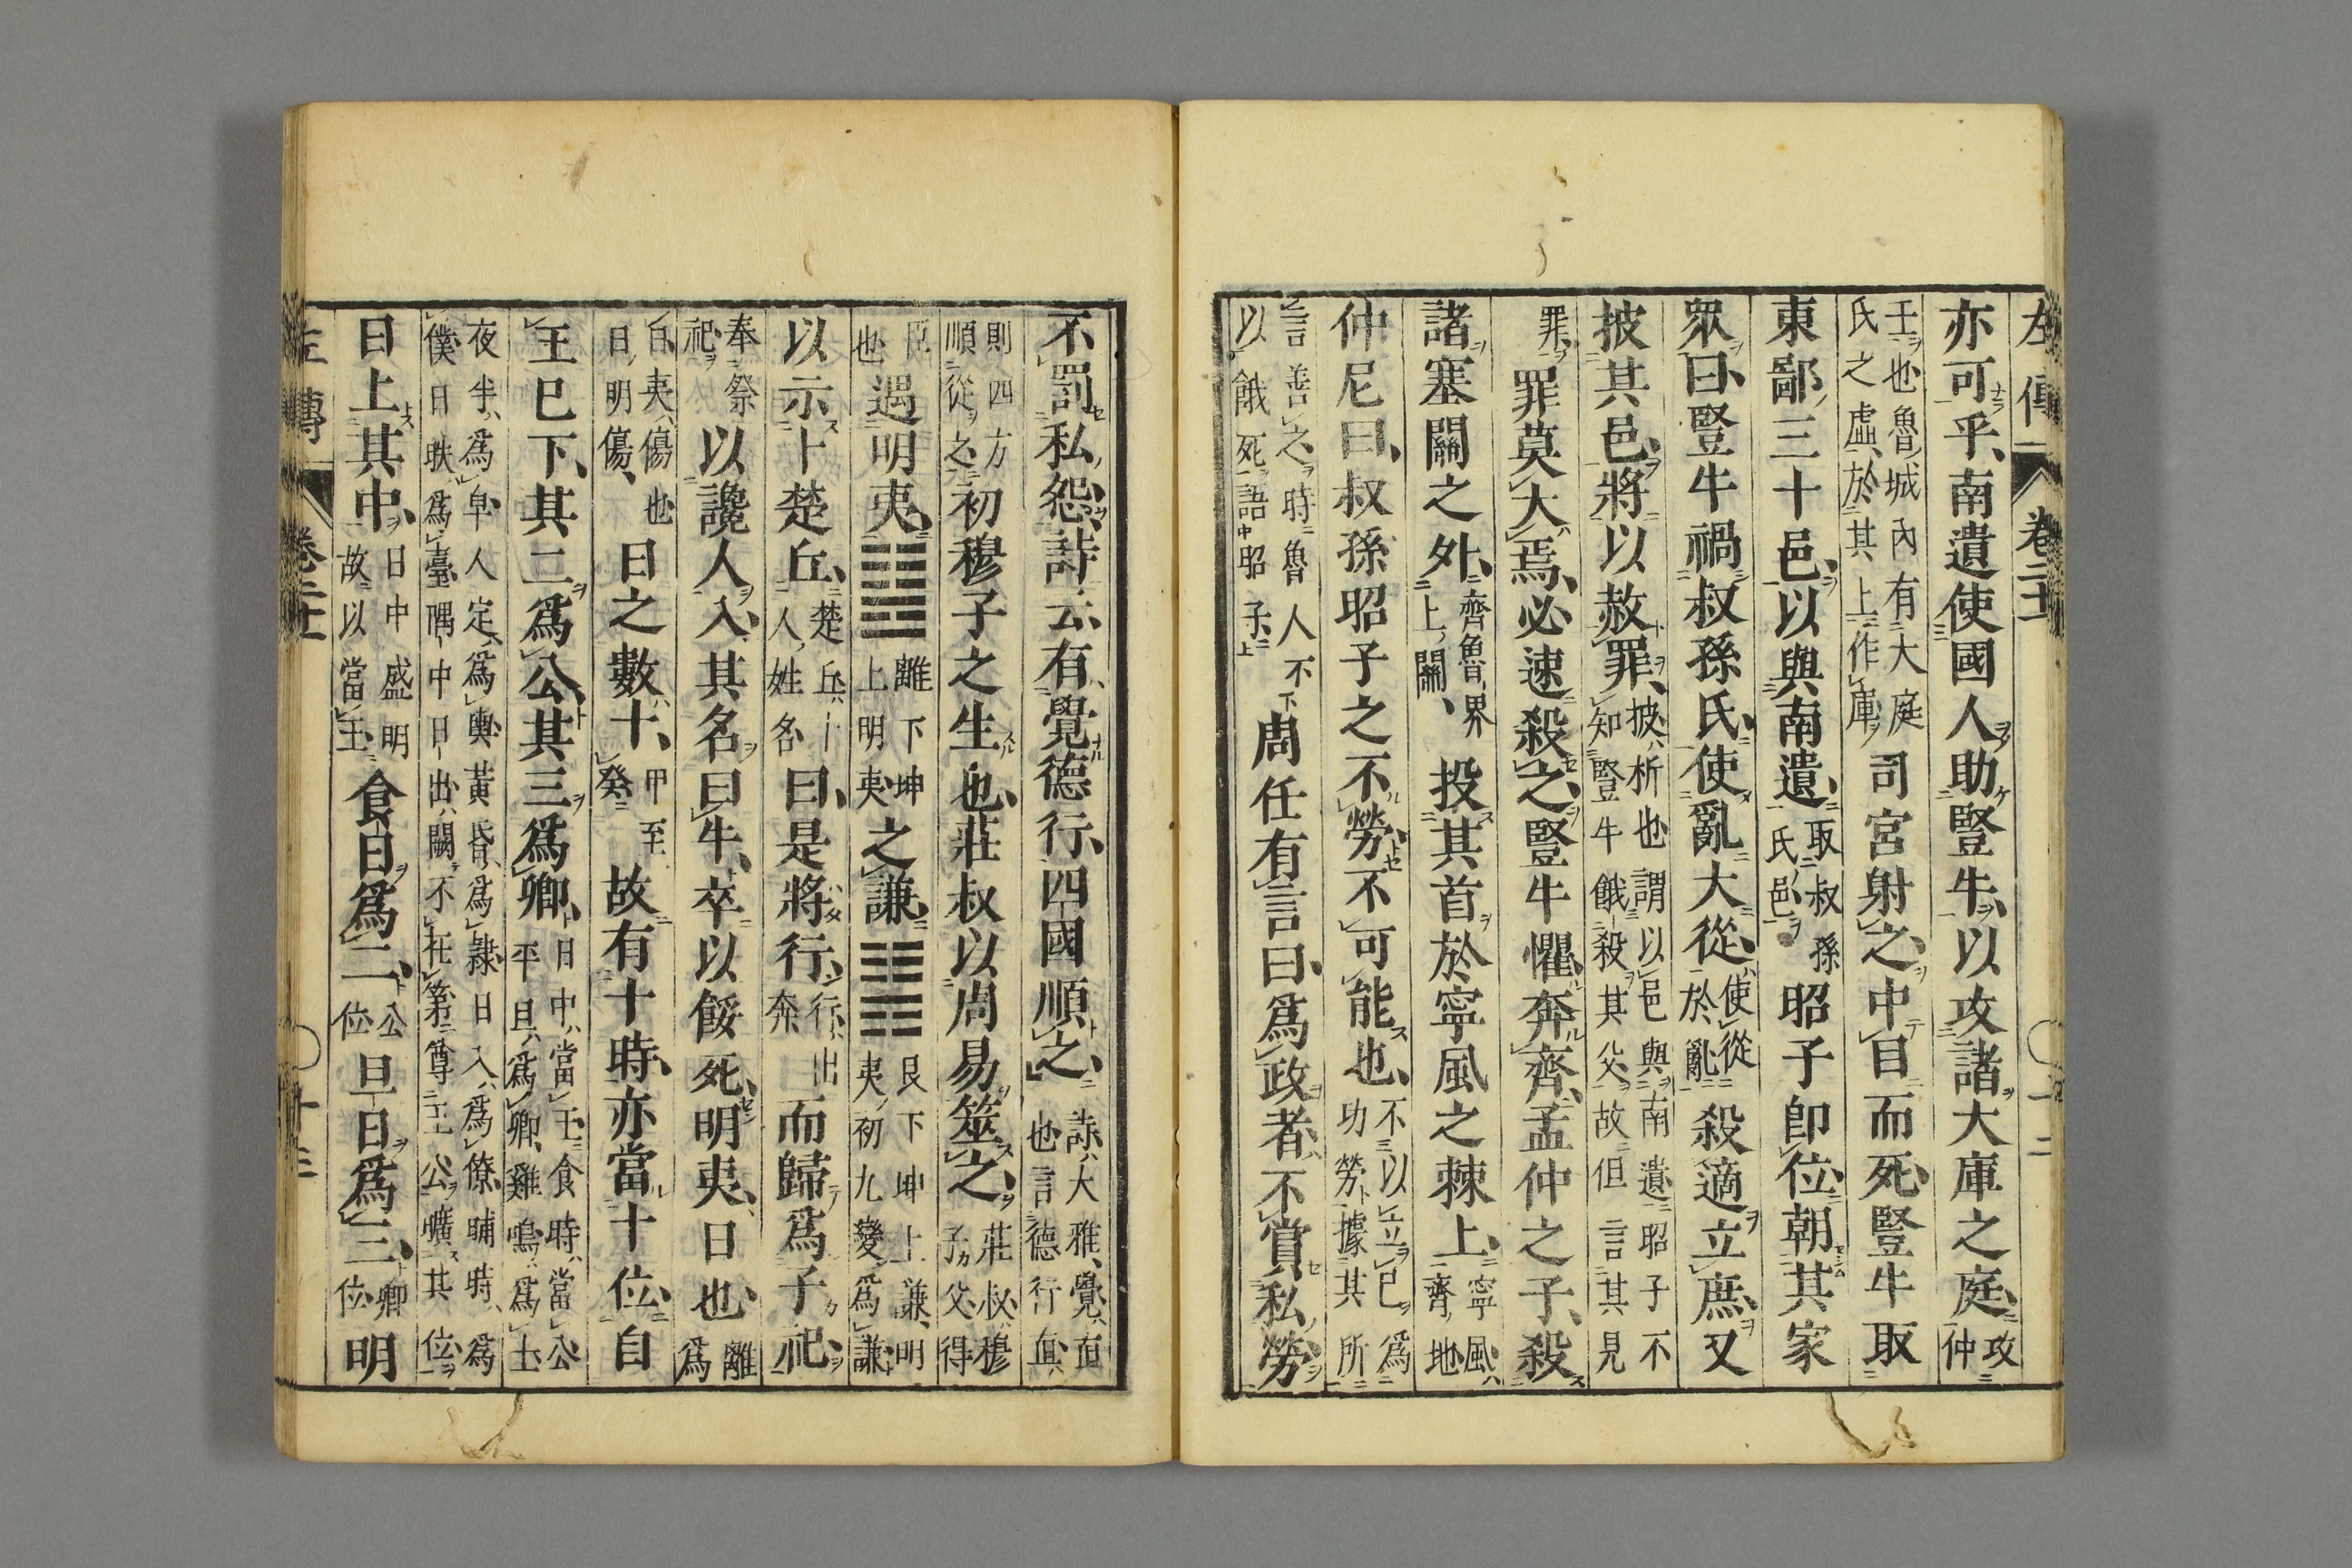 左傳 卷二十一 十二
亦可乎南遺使國人助豎牛以攻諸大庫之庭攻仲
壬也魯城內有大庭氏之虛於其上作庫司宮射之中目而死豎牛取
東鄙三十邑以與南遺取叔孫氏邑昭子卽位朝其家
眾曰豎牛禍叔孫氏使亂大從使從於亂殺適立庶又
披其邑將以赦罪披析也謂以邑與南遺昭子不知豎牛餓殺其父故但言其見
罪罪莫大焉必速殺之豎牛懼奔齊孟仲之子殺
諸塞關之外齊魯界上關投其首於寧風之棘上寧風齊地
仲尼曰叔孫昭子之不勞不可能也不以立己爲功勞據其所
言善之時魯人不以餓死語昭子周任有言曰爲政者不賞私勞
不罰私怨詩云有覺德行四國順之詩大雅覺直也言德行直
則四方順從之初穆子之生也莊叔以周易筮之莊叔穆子父得
臣也遇明夷䷣離下坤上明夷之謙䷎艮下坤上謙明夷初九變爲謙
以示卜楚丘楚丘卜人姓名曰是將行行出奔而歸爲子祀
奉祭祀以讒人入其名曰牛卒以餒死明夷日也離爲
日夷傷也日明傷日之數十甲至癸故有十時亦當十位自
王已下其二爲公其三爲卿日中當王食時當公平旦爲卿雞鳴爲士
夜半爲皁人定爲輿黃昏爲隸日入爲僚晡時爲僕日昳爲臺隅中日出闕不在第尊王公曠其位
日上其中日中盛明故以當王食日爲二公位旦日爲三卿位明
左傳 卷二十一 十三